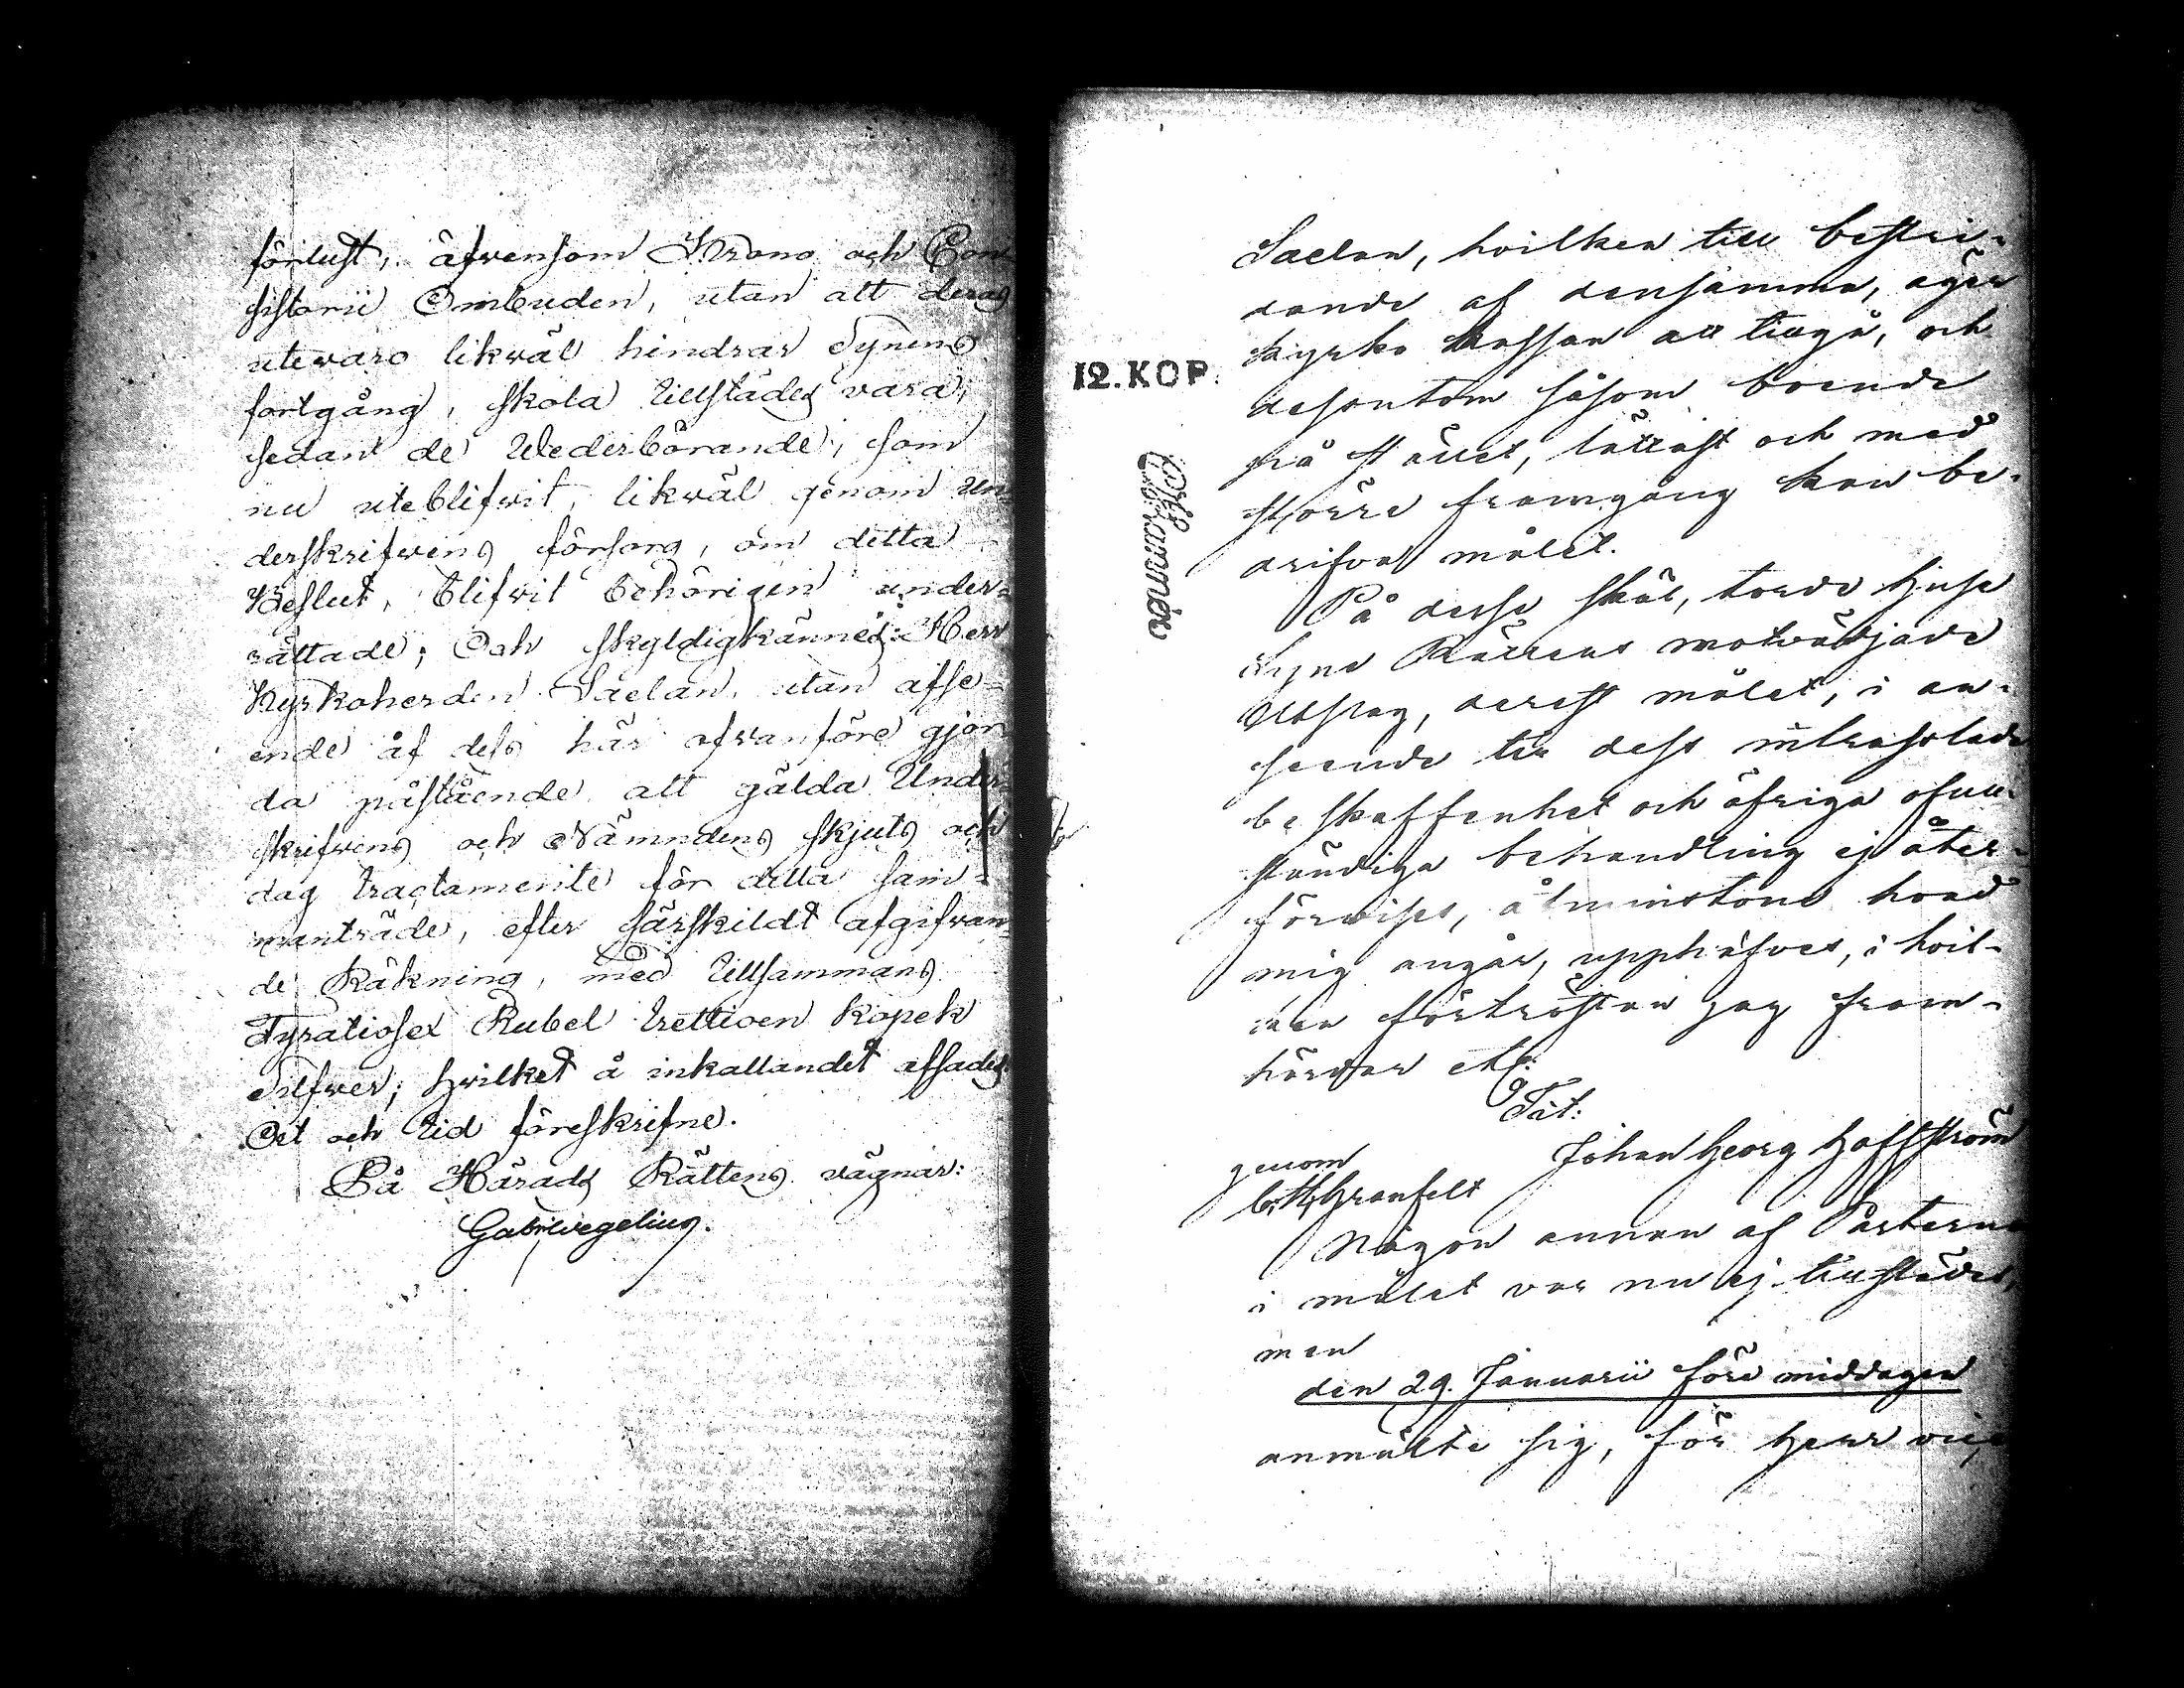 förlust, äfwensom Krono och Con
sistorii Ombuden, utan att deras
utewaro likwäl hindrar Synens
fortgång, skola tillstädes vara,
sedan de Wederbörande, som
nu uteblifwit, likwäl genom Un
derskrifwens försorg, om detta
Beslut, blifwit behörigen under-
rättade; Och skyldigkännes Herr
Kyrkoherden Saelan, utan afse-
ende af dess här ofvanföre gjor
da påstående att gälda Under
skrifwens och Nämndens skjuts och
dag tractamente för detta sam-
manträde, efter särskildt afgifvan-
de Räkning, med tillsammans
Fyratiosex Rubel trettioen kopek
Silfwer; hwilket å inkallandet afsades
Ort och tid föreskrifne.
På Härads Rättens vägnar:
Gabr Wegelius.
12. KOP.
Saelan, hvilken till bestri-
dande af densamma, äger
Kyrko Kassan att tillgå, och
dessutom såsom boende
på stället, lättast och med
större framgång kan be-
drifva målet.
På desse skäl, torde Husé
Syne Rättens motvädjade
Utslag, derest målet, i an-
seende till dess intrasslade
beskaffenhet och öfriga ofull-
ständiga behandling ej åter-
förvises, åtminstone hvad
mig angår, upphäfves, i hvil-
ken förtröstan jag fram-
härdar etc:
Tit:
Johan Georg Hoffström
genom
C. H. Granfelt
Någon annan af Parterna
i målet var nu ej tillstädes,
men
den 29. Januarii före middagen
anmälte sig, för Herr vice